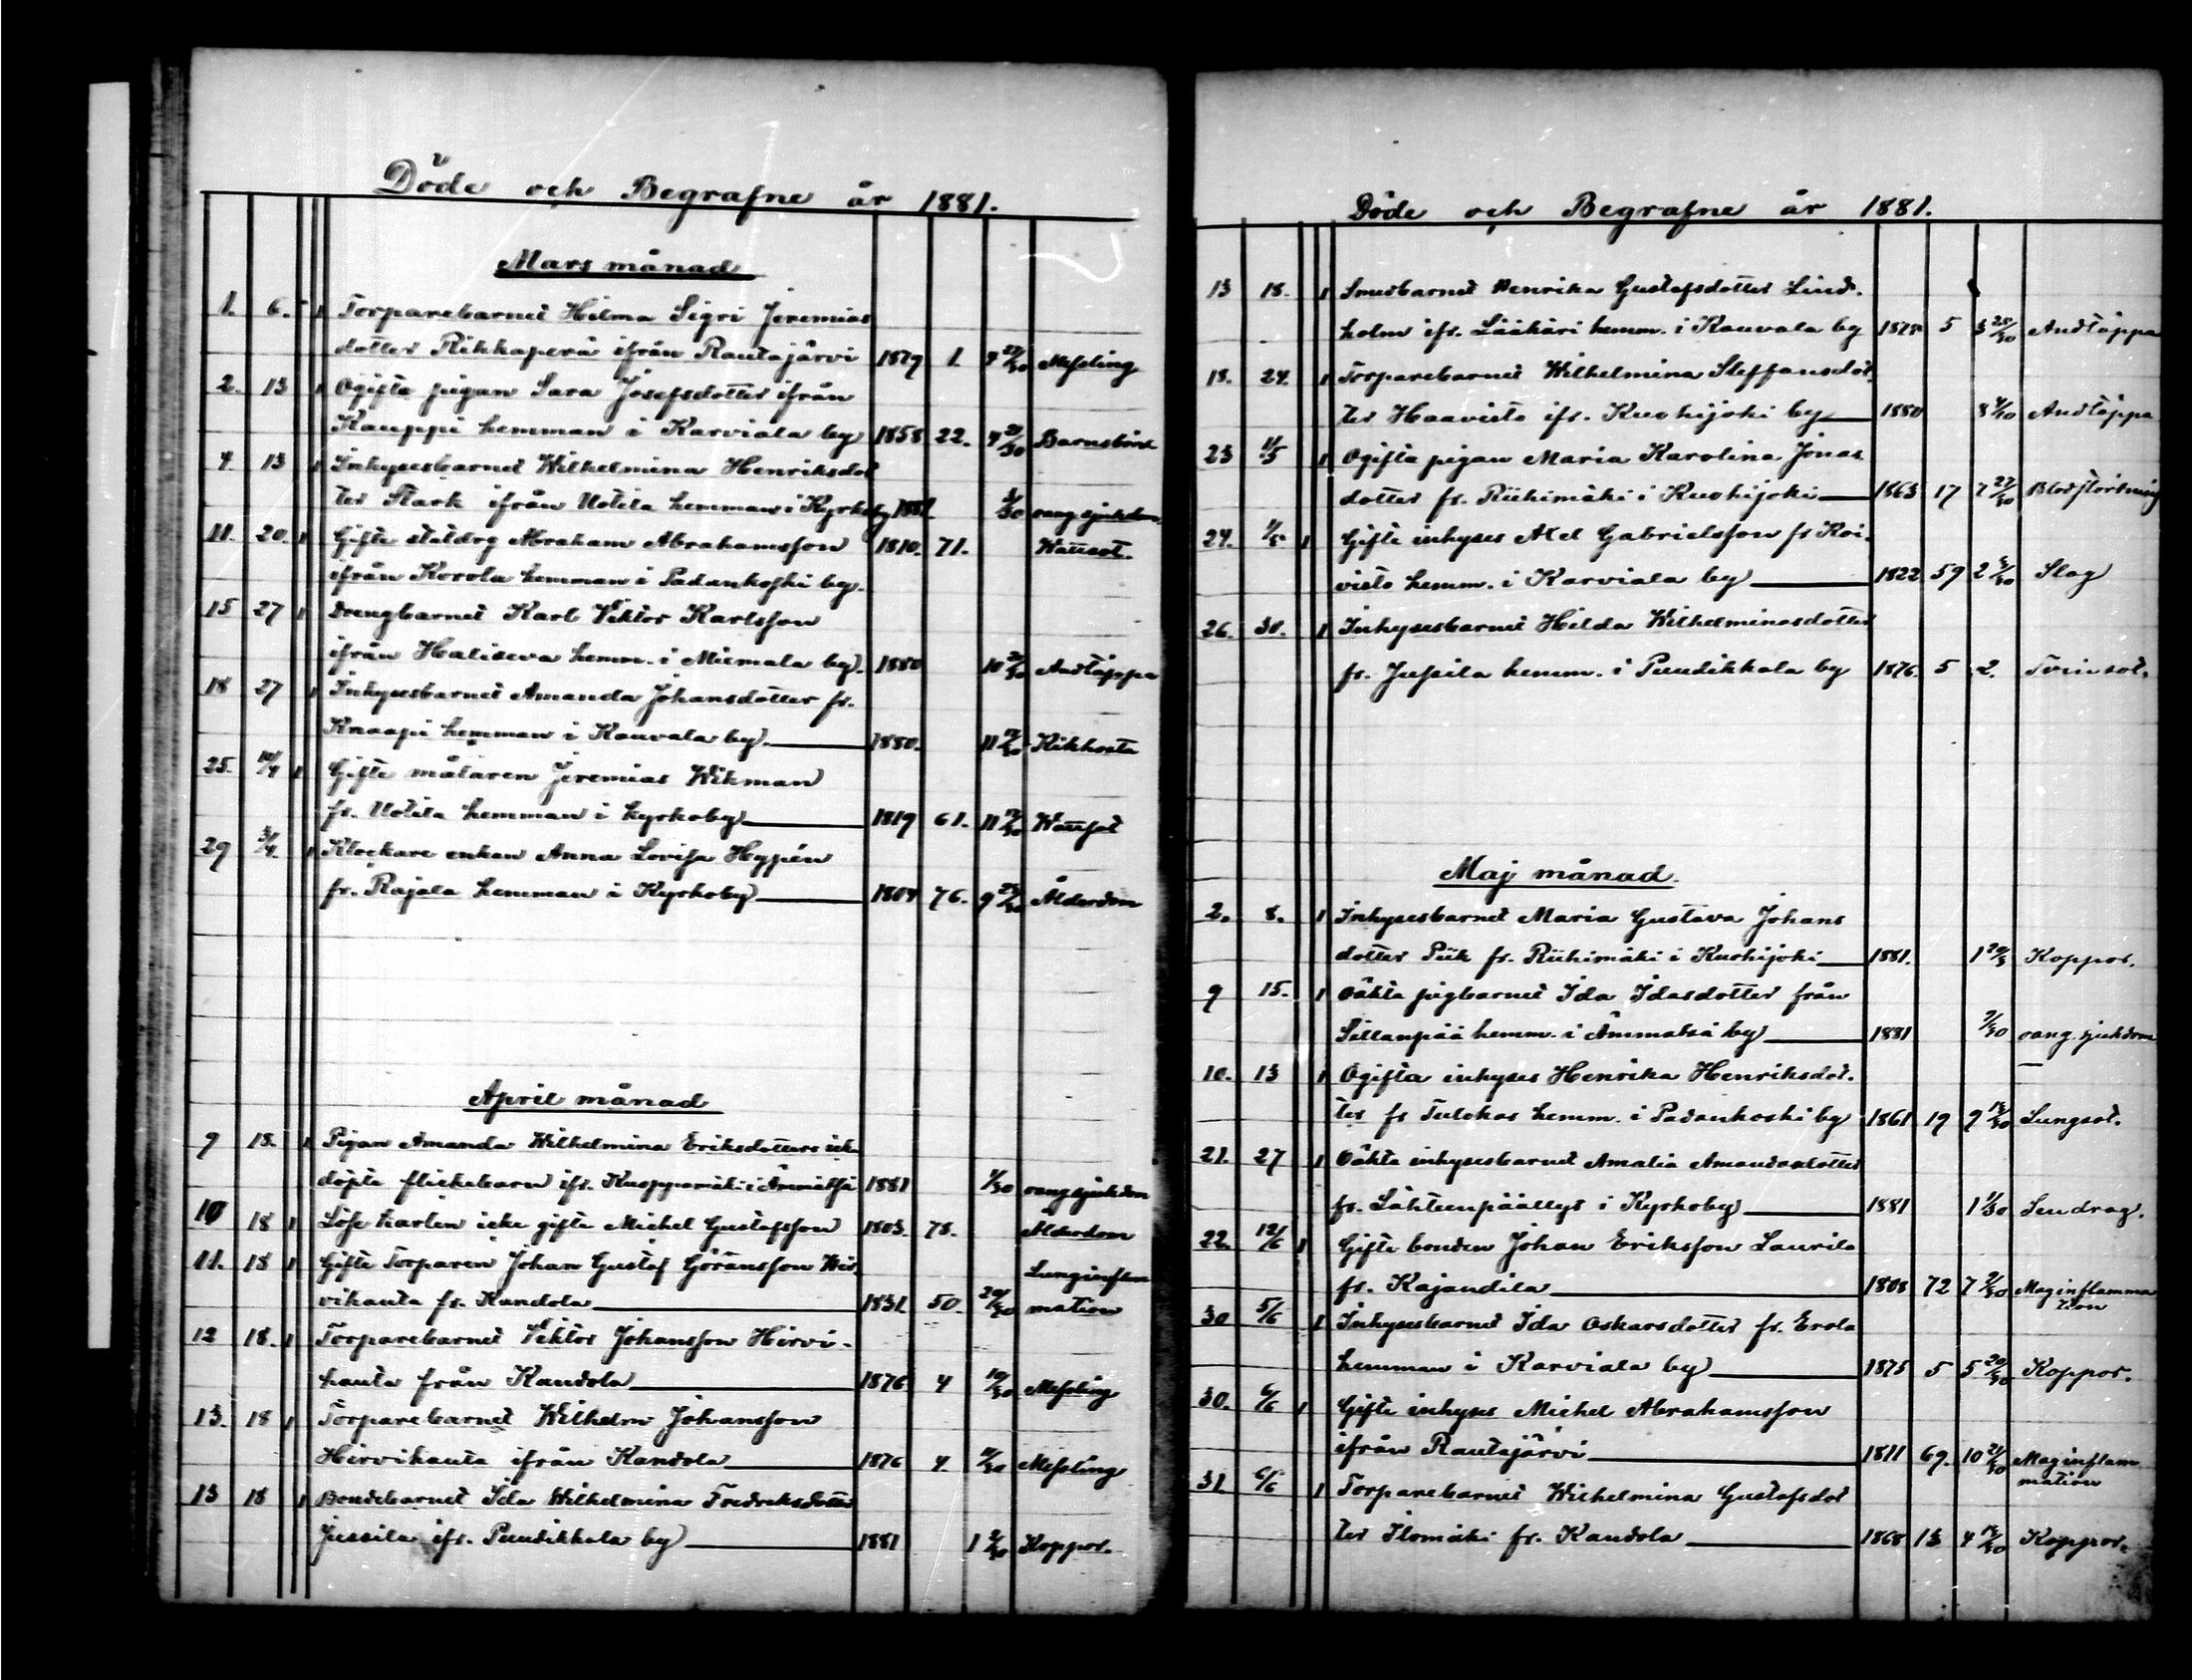 Döde och Begrafne år 1881.
Mars månad
1. 6. 1 Torparebarnet Hilma Sigri Jeremias
dotter Rikkaperä ifrån Rautajärvi 1879 1. 9 27/30 Messling
2. 13 1 Ogifta pigan Sara Josefsdotter ifrån
Kauppi hemman i Karviala by 1858 22. 9 21/30 Barnsbörd
4. 13 1 Inhysesbarnet Wilhelmina Henriksdot
ter Stark ifrån Uotila hemman i Kyrkoby 1881. 3/30 oang. sjukdom
11. 20. 1 Gifte statdrg Abraham Abrahamsson 1810. 71. Wattsot.
ifrån Korola hemman i Padankoski by.
15 27 1 Drengbarnet Karl Viktor Karlsson
ifrån Haliseva hemm. i Miemala by. 1880 10 Andtäppa
18 27 1 Inhysesbarnet Amanda Johansdotter fr.
Knaapi hemman i Kauvala by. 1880. 11 Kikhosta
25. 10/4 1 Gifte målaren Jeremias Wikman
fr. Uotila hemman i Kyrkoby 1819 61. 11 Wattsot
29 3/4. 1 Klockare enkan Anna Lovisa Hyppén
fr. Rajala hemman i Kyrkoby 1804 76. 9 Ålderdom
April månad
9 18. 1 Pigan Amanda Wilhelmina Eriksdotters icke
döpta flickebarn ifr. Kuoppamäki i Ämmätsä 1881 1/30 oang sjukdom
10 18 1 Löse karlen icke gifte Michel Gustafsson 1803. 78. Ålderdom
11. 18 1 Gifte Torparen Johan Gustaf Göransson Hir- Lunginflam
vihauta fr. Kandola 1831. 50. 20/30 mation
12 18. 1 Torparebarnet Viktor Johansson Hirvi-
hauta från Kandola 1876 4 10/30 Messling
13. 18 1 Torparebarnet Wilhelm Johansson
Hirvihauta ifrån Kandola 1876 4. 11/30 Messling
13 18 1 Bondebarnet Ida Wilhelmina Fredriksdotter
Jussila ifr. Puudikkala by 1881 1 2/30 Koppor.
Döde och Begrafne år 1881.
13 18. 1 Smedbarnet Henrika Gustafsdotter Lind-
holm ifr. Lääkäri hemm. i Kauvala by 1875 5 3 25/30 Andtäppa
18. 24. 1 Torparebarnet Wilhelmina Steffansdot-
ter Haavisto ifr. Kuohijoki by 1880 8 4/30 Andtäppa
23 1/5 1 Ogifta pigan Maria Karolina Jonas
dotter fr. Riihimäki i Kuohijoki 1863 17 7 27/30 Blodstörtning
24. 1/5 1 Gifte inhyses Axel Gabrielsson fr Koi-
visto hemm. i Karviala by 1822 59 2 3/30 Slag
26. 30. 1 Inhysesbarnet Hilda Wilhelminasdotter
fr. Jussila hemm. i Puudikkala by 1876. 5 2. Tvinsot.
Maj månad.
2. 8. 1 Inhysesbarnet Maria Gustava Johans
dotter Piik fr. Riihimäki i Kuohijoki 1881. 1 Koppor.
9 15. 1 Oäkta pigbarnet Ida Idasdotter från
Sillanpää hemm. i Ämmätsä by 1881 7/30 oang. sjukdom
10. 13 1 Ogifta inhyses Henrika Henriksdot-
ter fr Tulokas hemm. i Padankoski by 1861 19 9 Lungsot.
21. 27 1 Oäkta inhysesbarnet Amalia Amandasdotter
fr. Lähteenpäällys i Kyrkoby 1881 1 1/30 Sendrag.
22. 12/6 1 Gifte bonden Johan Eriksson Laurila
fr. Kajandila 1808 72 7 2/30 Maginflamma
tion
30 5/6 1 Inhysesbarnet Ida Oskarsdotter fr. Erola
hemman i Karviala by 1875 5 5 20/30 Koppor.
30. 6/6 1 Gifte inhyses Michel Abrahamsson
ifrån Rautajärvi 1811 69. 10 21/30 Maginflam
mation
31 6/6 1 Torparebarnet Wilhelmina Gustafsdot
ter Ilomäki fr. Kandola 1868 13 4 Koppor.